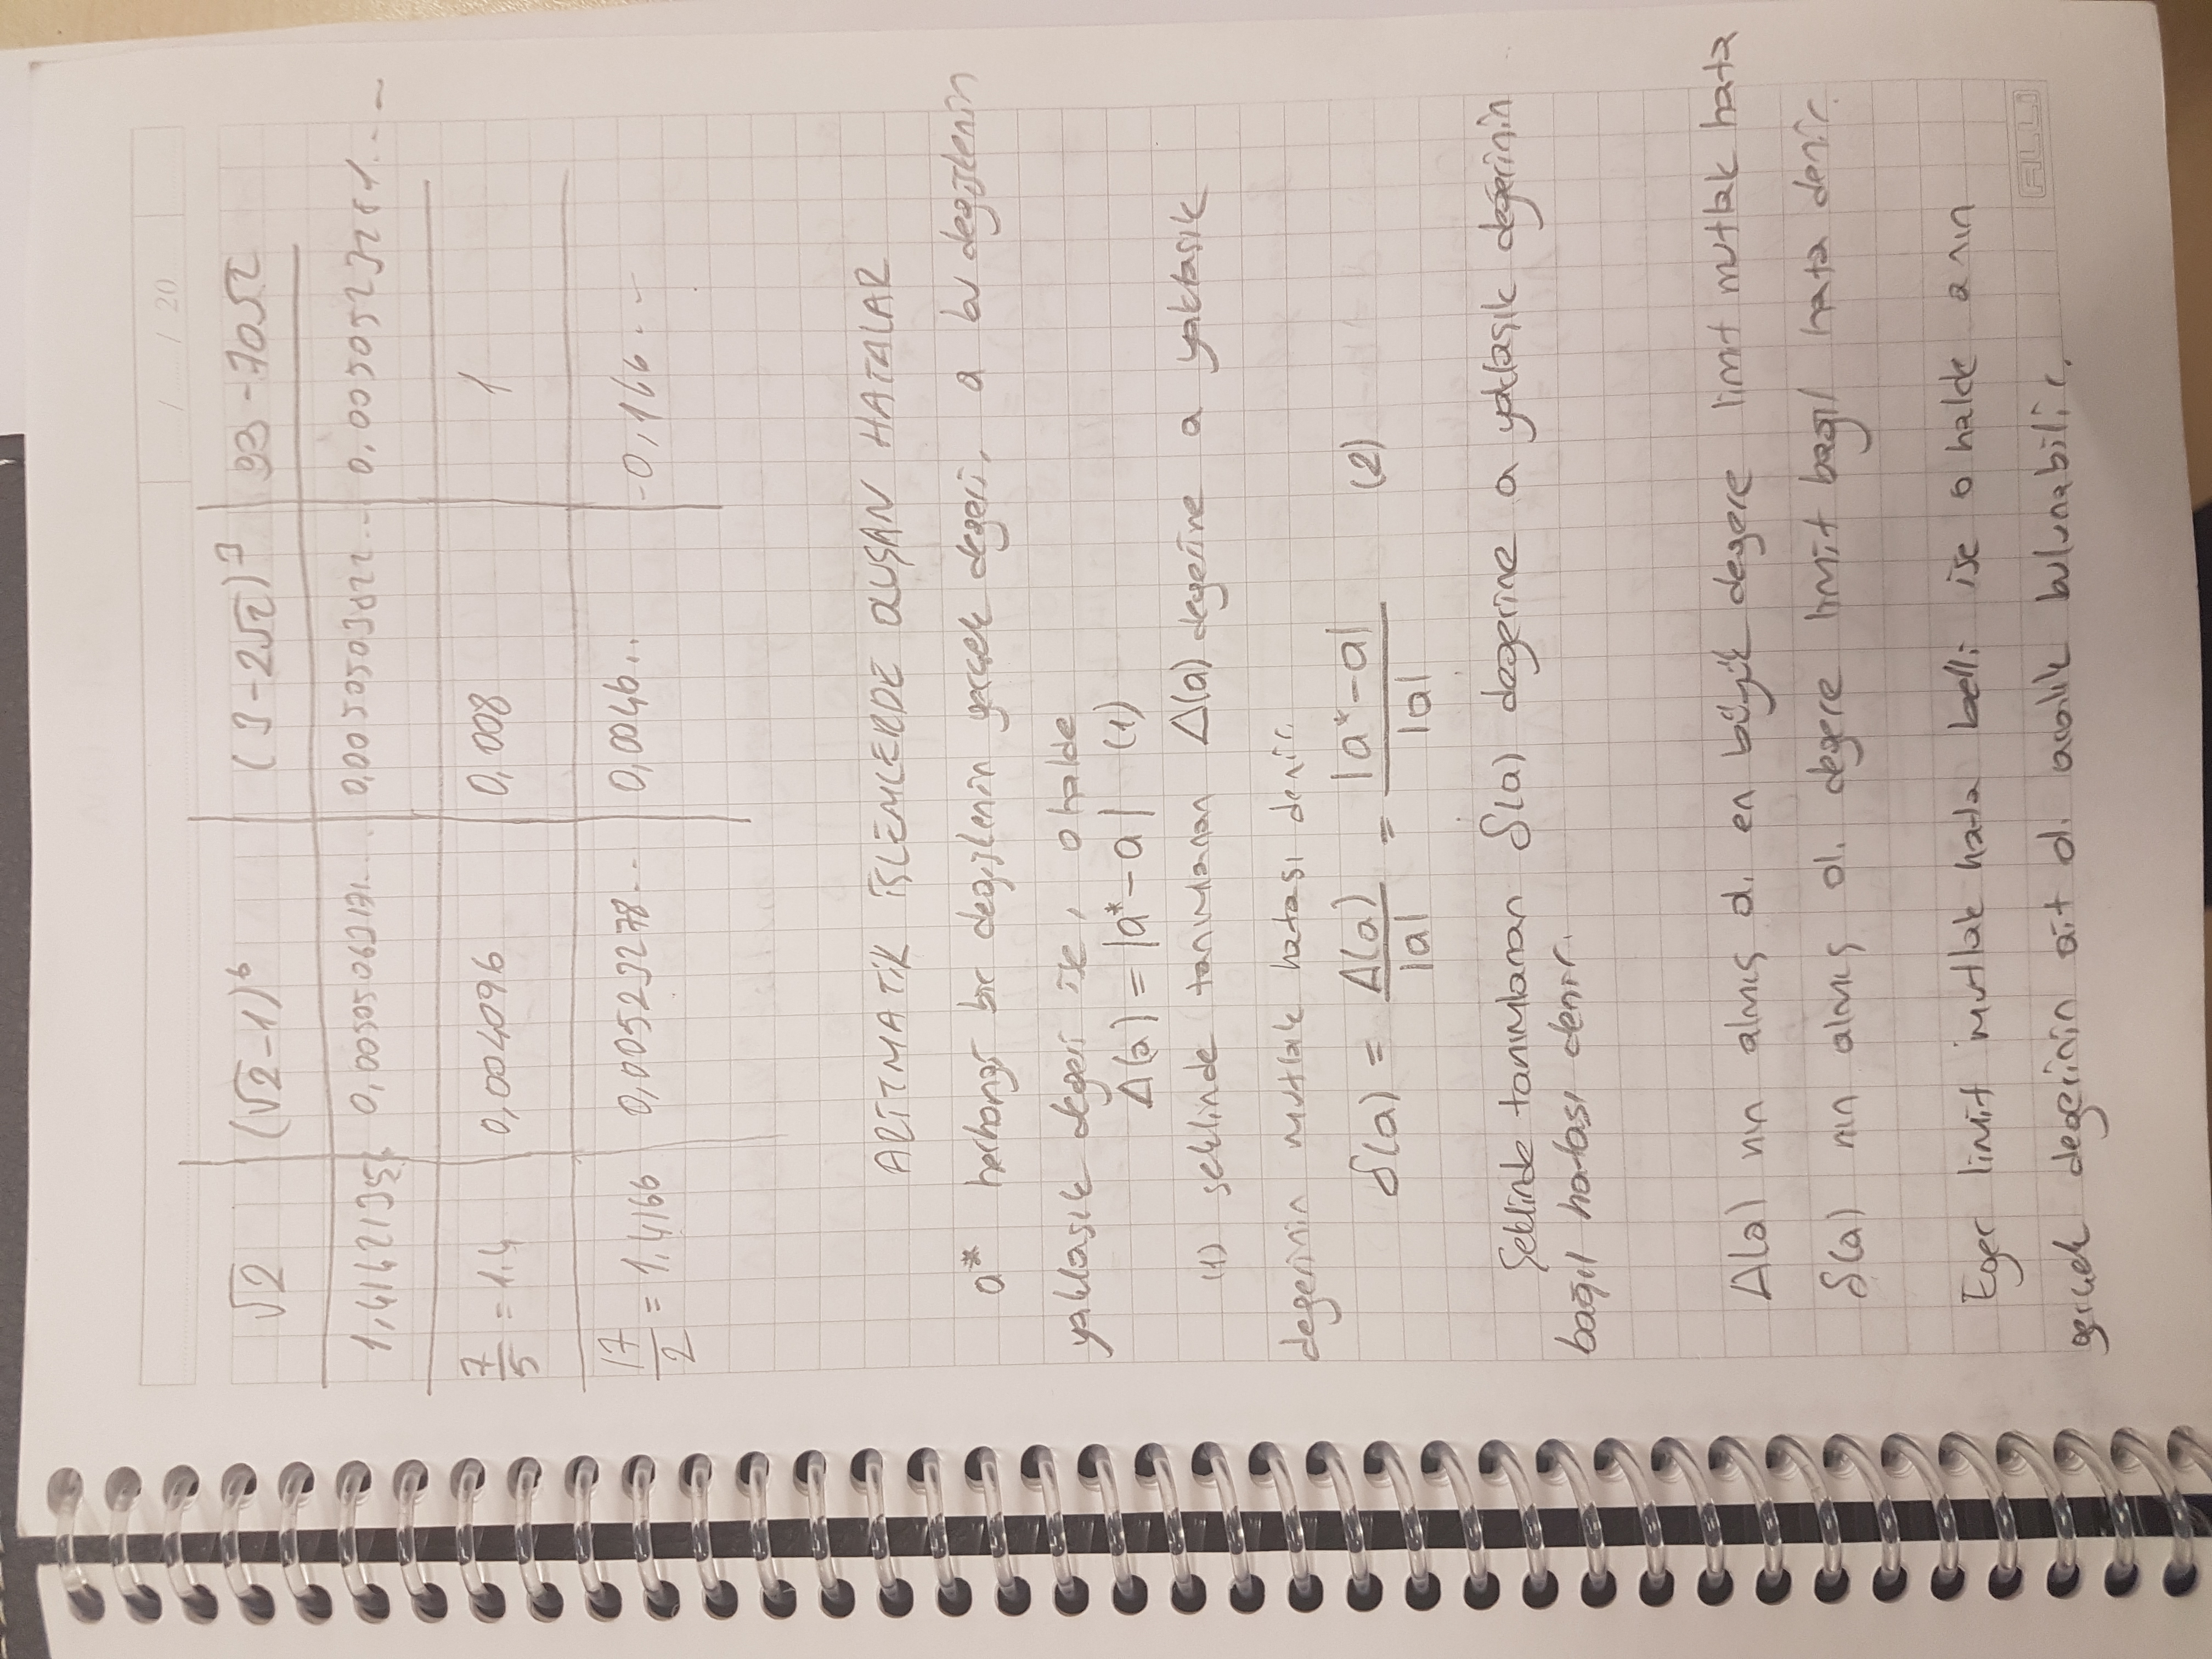 / / 20
√2 (√2-1)⁶ (3-2√2)³ 99-70√2
1,4142135.. 0,00505063171... 0,0050503822... 0,0050523281....
7/5 = 1.4 0,004096 0,008 1
17/2 = 1.4166 0,00523278.. 0,0046.. -0,166...
ARİTMATİK İŞLEMLERDE OLUŞAN HATALAR
a* herhangi bir değişkenin gerçek değeri, a bu değişkenin
yaklaşık değeri ise, o halde
Δ(a) = |a*-a| (1)
(1) şeklinde tanımlanan Δ(a) değerine a yaklaşık
değerinin mutlak hatası denir.
δ(a) = Δ(a)/|a| = |a*-a|/|a| (2)
Şeklinde tanımlanan δ(a) değerine a yaklaşık değerinin
bağıl hatası denir.
Δ(a) nın almış ol. en büyük değere limit mutlak hata
δ(a) nın almış ol. değere limit bağıl hata denir.
Eğer limit mutlak hata belli ise o halde a nın
gerçek değerinin ait ol. aralık bulunabilir.
ALLi